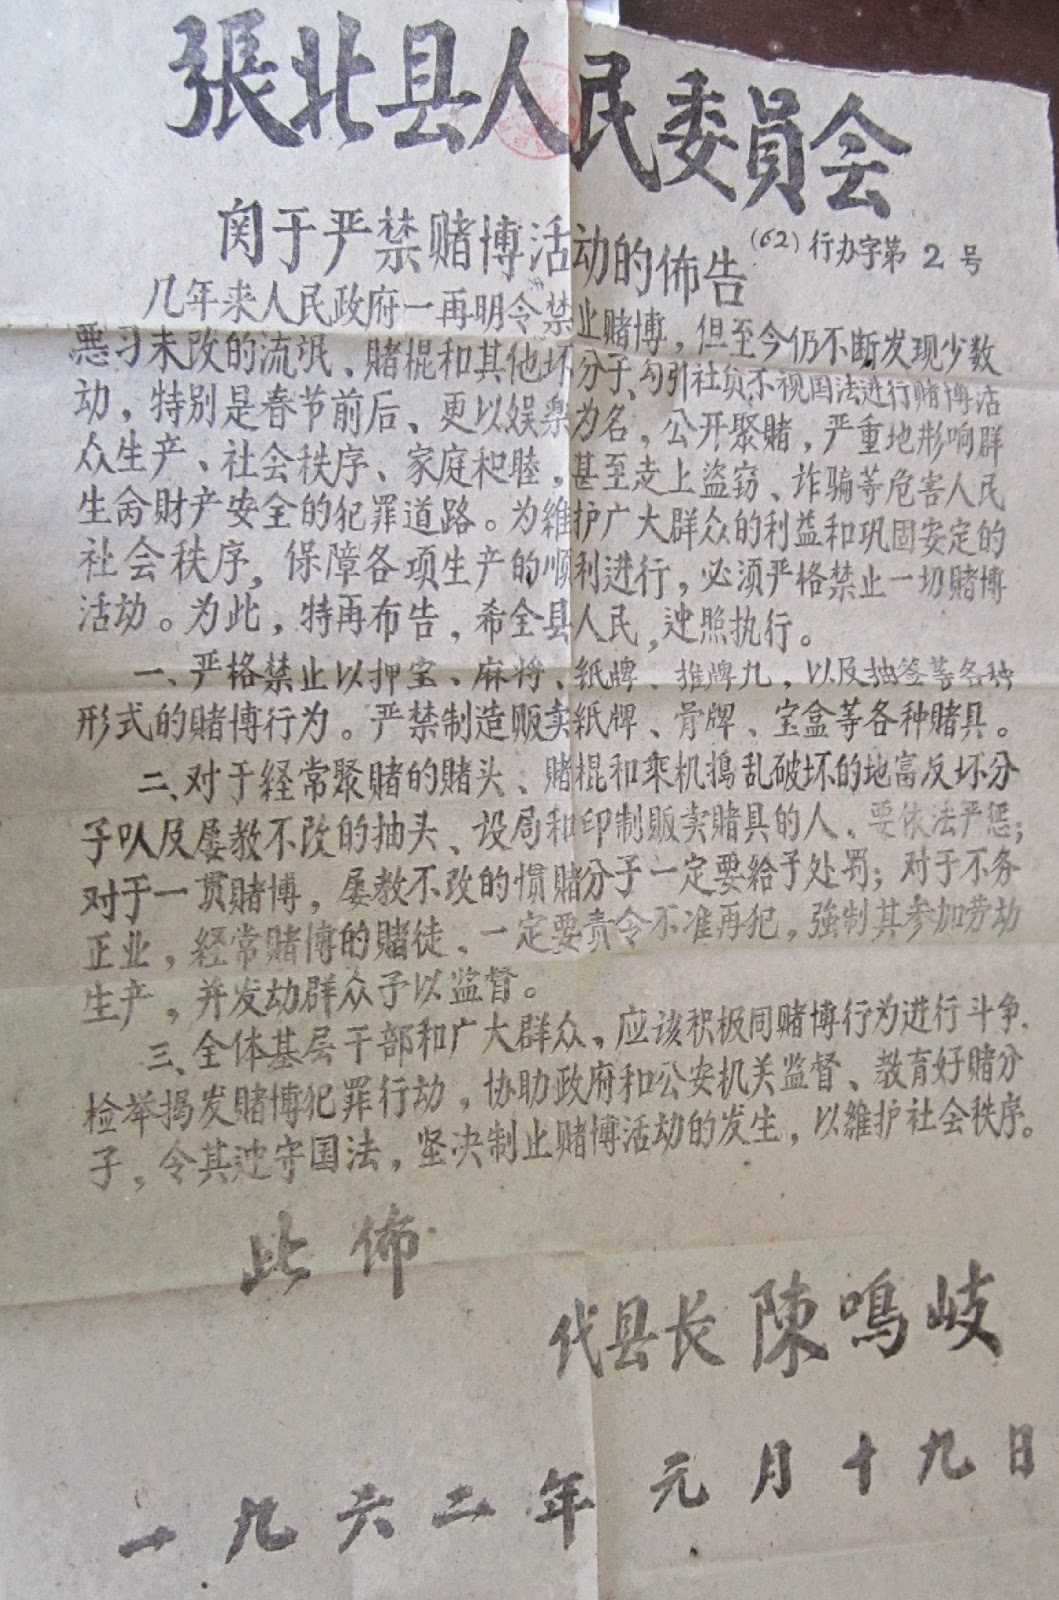 張北县人民委員会
関于严禁赌博活动的佈告
(62)行办字第2号
几年来人民政府一再明令禁止赌博，但至今仍不断发现少数
恶习未改的流氓、赌棍和其他坏分子、勾引社员不视国法进行赌博活
动，特别是春节前后、更以娱乐为名，公开聚赌，严重地影响群
众生产、社会秩序、家庭和睦，甚至走上盗窃、诈骗等危害人民
生命財产安全的犯罪道路。为維护广大群众的利益和巩固安定的
社会秩序，保障各项生产的顺利进行，必须严格禁止一切赌博
活动。为此，特再布告，希全县人民，遵照执行。
一、严格禁止以押宝、麻将、纸牌、推牌九，以及抽签等各种
形式的赌博行为。严禁制造贩卖纸牌、骨牌、宝盒等各种赌具。
二、对于经常聚赌的赌头、赌棍和乘机搗乱破坏的地富反坏分
子以及屡教不改的抽头、设局和印制贩卖赌具的人、要依法严惩；
对于一贯赌博，屡教不改的惯赌分子一定要給予处罚；对于不务
正业，经常赌博的赌徒、一定要責令不准再犯，强制其参加劳动
生产，并发动群众予以监督。
三、全体基层干部和广大群众，应该积极同赌博行为进行斗争，
检举揭发赌博犯罪行动，协助政府和公安机关监督、教育好赌分
子，令其遵守国法，坚决制止赌博活动的发生，以維护社会秩序。
此佈
代县长 陳鳴岐
一九六二年元月十九日